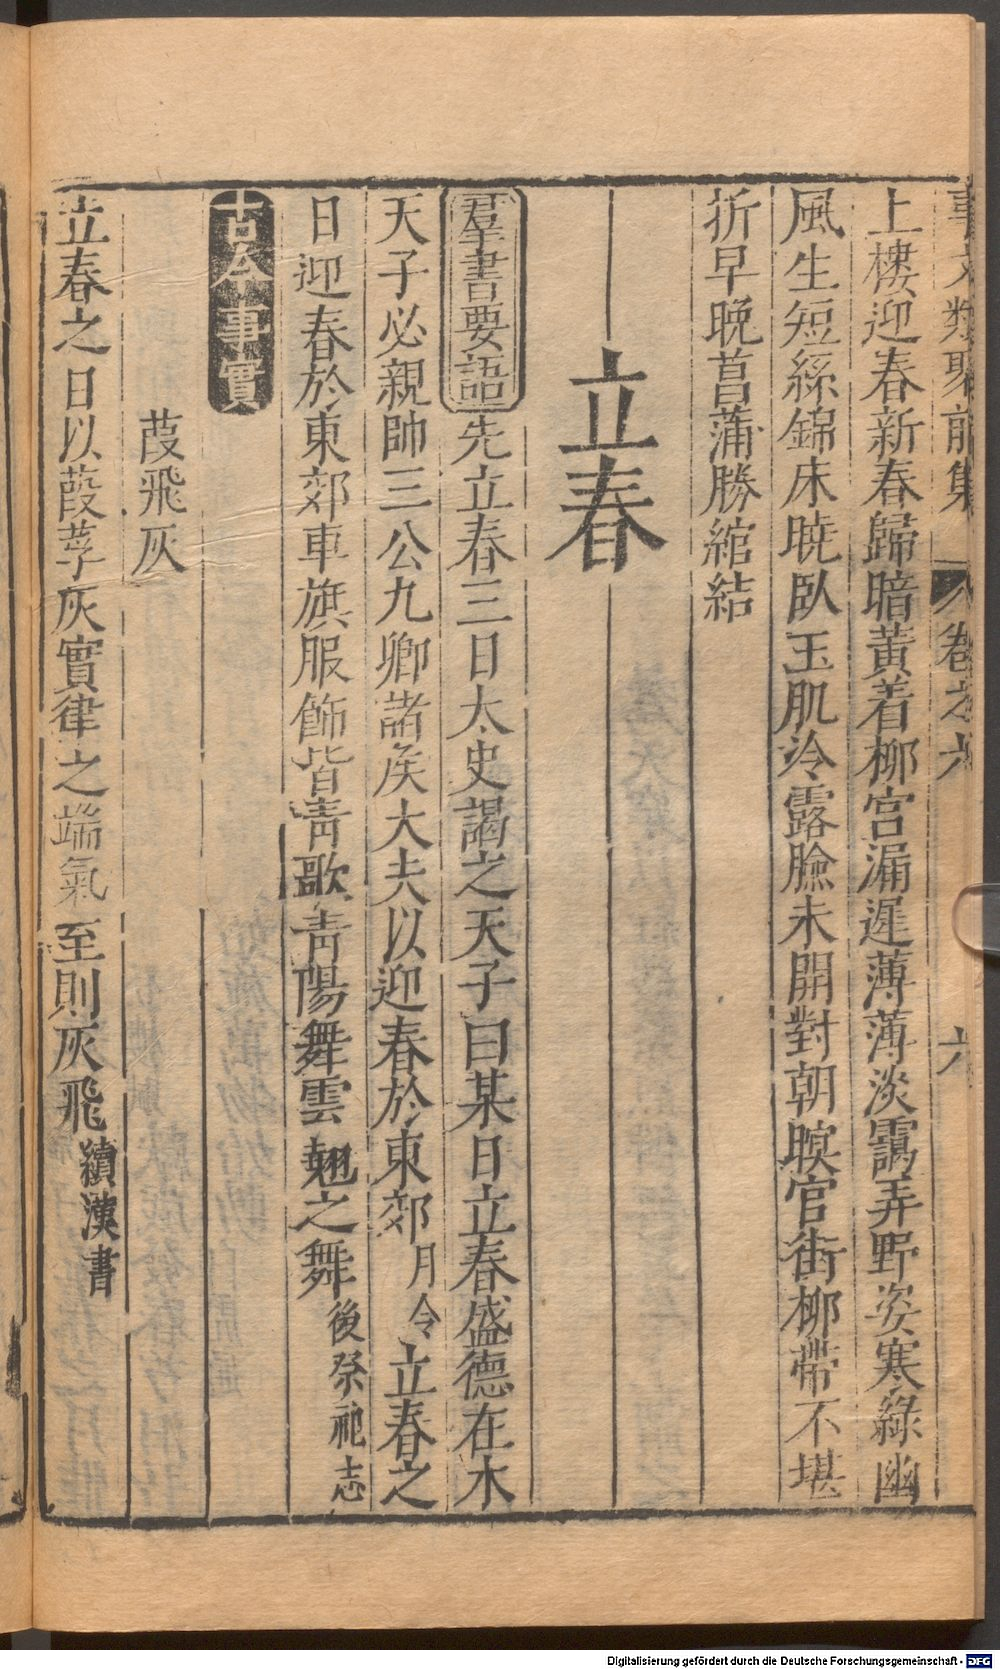 事文類聚前集 卷之六 六
上樓迎春新春歸暗黃着柳宮漏遲薄薄淡靄弄野姿寒綠幽
風生短絲錦床曉臥玉肌冷露臉未開對朝暝官街柳帶不堪
折早晚菖蒲勝綰結
立春
羣書要語先立春三日太史謁之天子曰某日立春盛德在木
天子必親帥三公九卿諸侯大夫以迎春於東郊月令立春之
日迎春於東郊車旗服飾皆靑歌靑陽舞雲翹之舞後祭祀志
古今事實
葭飛灰
立春之日以葭莩灰實律之端氣至則灰飛續漢書
Digitalisierung gefördert durch die Deutsche Forschungsgemeinschaft - DFG